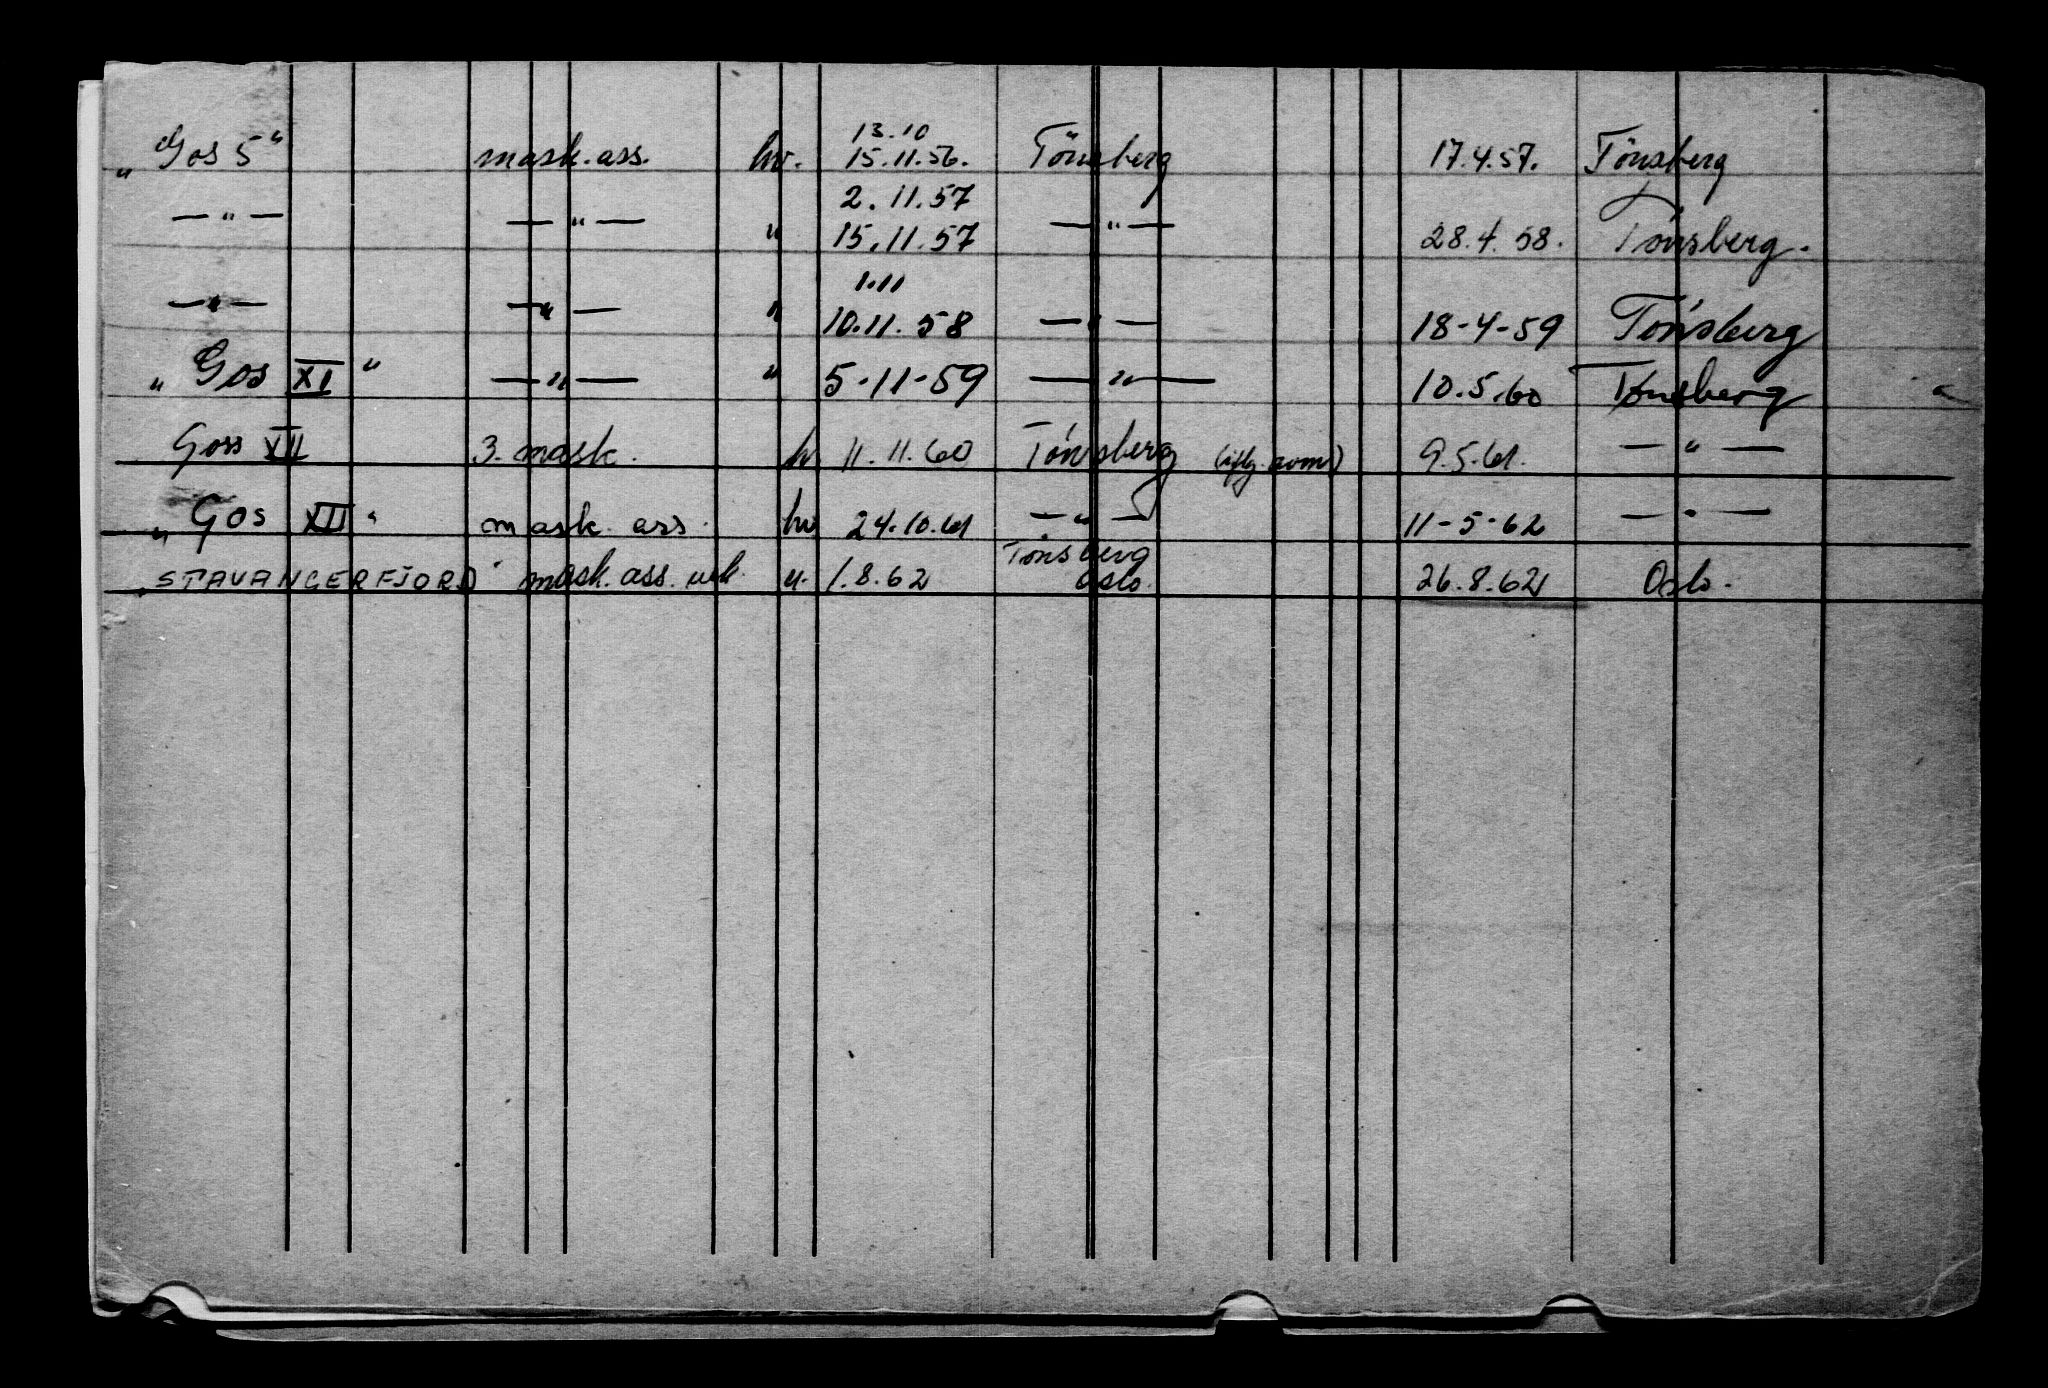 13.10
„ Gos 5" mask.ass. hv. 15.11.56. Tönsberg 17.4.57. Tönsberg
2.11.57
— " — — " — " 15.11.57 — " — 28.4.58. Tønsberg.
1.11
— " — — " — " 10.11.58 — " — 18-4-59 Tønsberg
„ Gos XI " — " — " 5-11-59 — " — 10.5.60 Tønsberg "
Goss XII 3. mask. h 11.11.60 Tónsberg 9.5.61. — " —
„ Gos XII " mask. ass. hv 24.10.61 — " — 11-5-62 — " —
Tönsberg
„ STAVANGERFJORD " mask. ass. u. 1.8.62 Oslo. 26.8.62 Oslo.